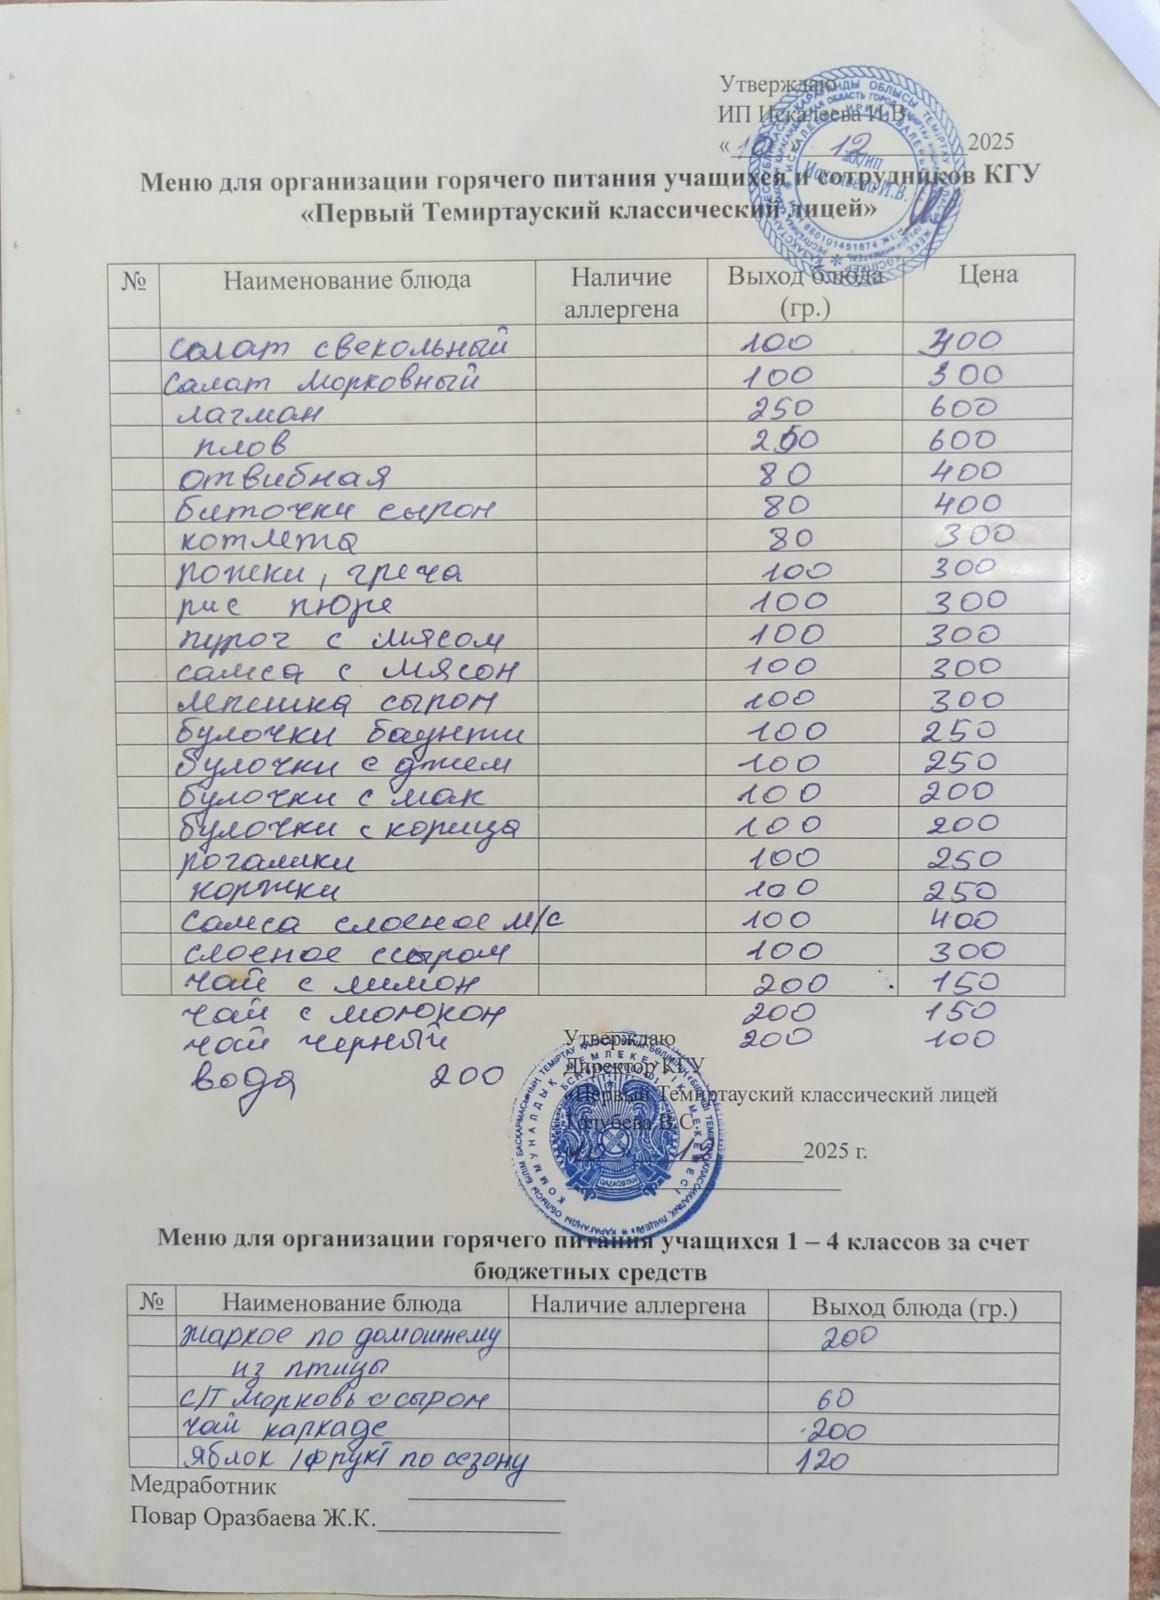 Утверждаю
ИП Искалеева И.В.
« 10 » 12 2025
Меню для организации горячего питания учащихся и сотрудников КГУ
«Первый Темиртауский классический лицей»
№ Наименование блюда Наличие аллергена Выход блюда (гр.) Цена
салат свекольный 100 300
салат морковный 100 300
лагман 250 600
плов 250 600
отвибная 80 400
биточки сырон 80 400
котлета 80 300
рожки, греча 100 300
рис пюре 100 300
пирог с мясом 100 300
самса с мясон 100 300
лепешка сырон 100 300
булочки баунти 100 250
булочки с джем 100 250
булочки с мак 100 200
булочки с корица 100 200
рогалики 100 250
коржики 100 250
самса слоеное м/с 100 400
слоеное ссыром 100 300
чай с лимон 200 150
чай с молокон 200 150
чай черный 200 100
вода 200
Утверждаю
Директор КГУ
«Первый Темиртауский классический лицей
Голубева В.С.
«10» 12 2025 г.
Меню для организации горячего питания учащихся 1 – 4 классов за счет
бюджетных средств
№ Наименование блюда Наличие аллергена Выход блюда (гр.)
жаркое по домошнему 200
из птицы
с/т морковь с сыром 60
чай каркаде 200
яблок /фрукт по сезону 120
Медработник
Повар Оразбаева Ж.К.